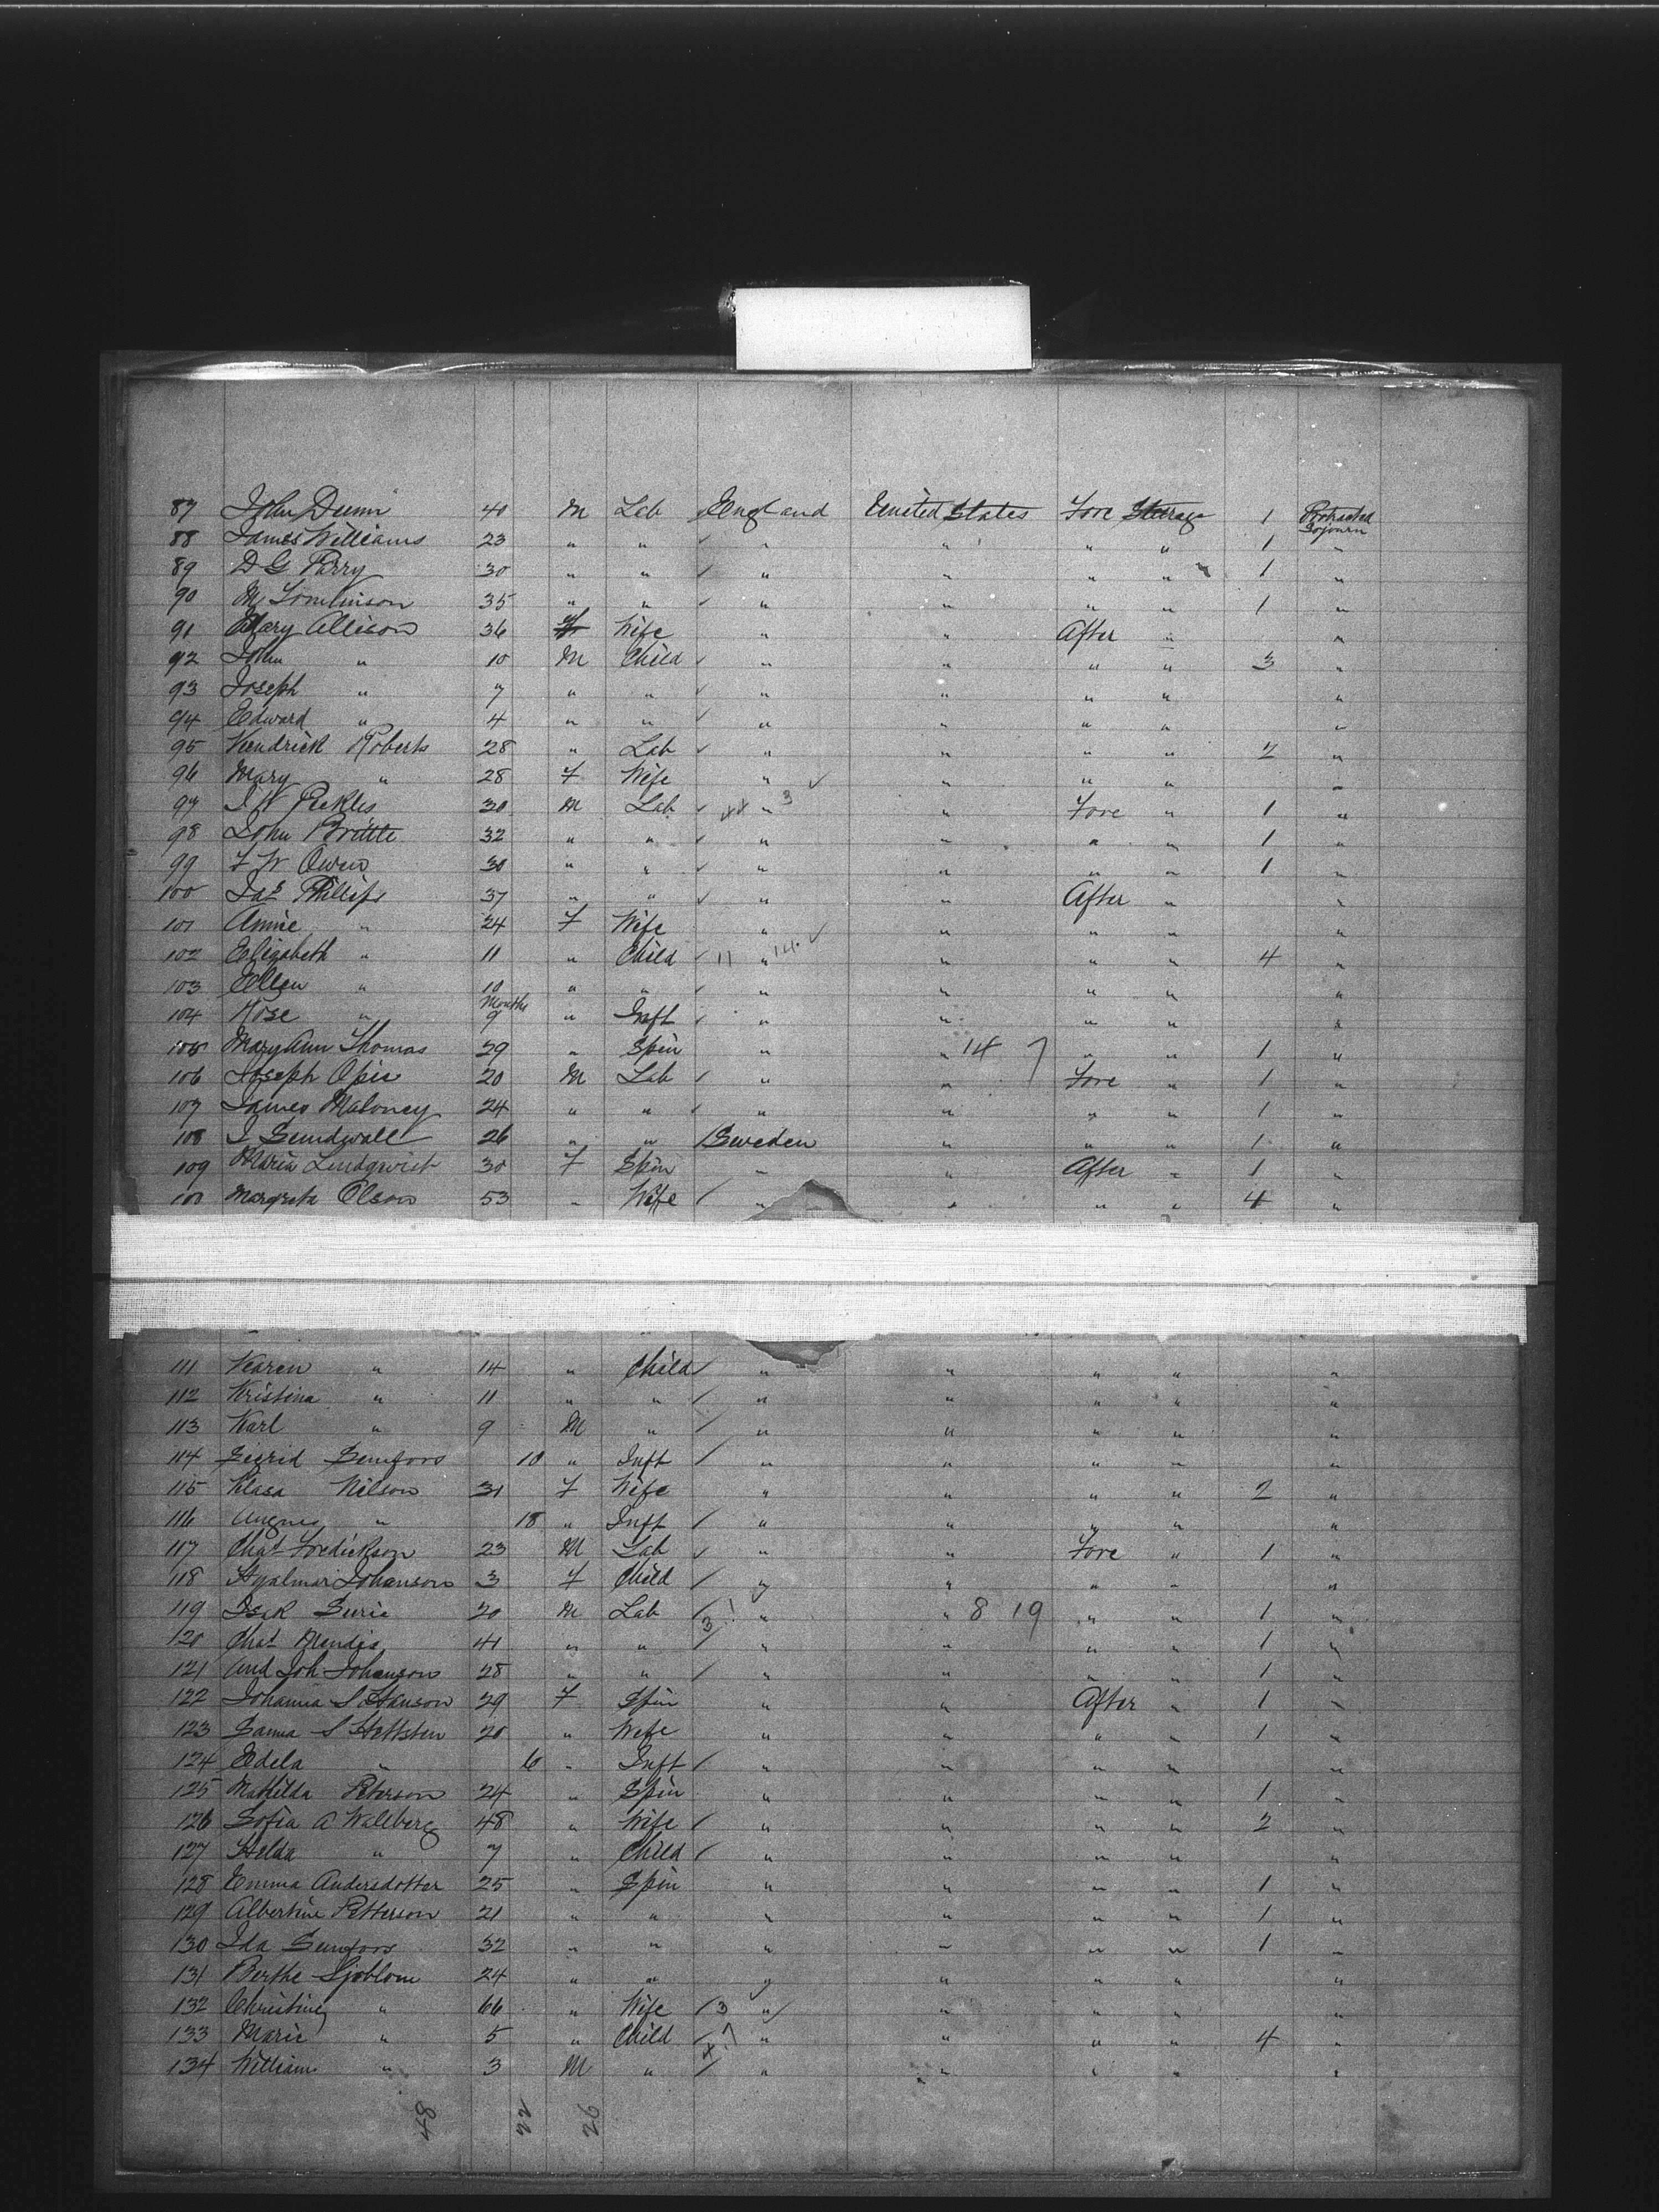 87 John Dunn 40 M Lab England United States Fore Steerage 1 Protracted Sojourn
88 James Williams 23 " " " " " " 1 "
89 D G Parry 30 " " " " " " 1 "
90 M Tomlinson 35 " " " " " " 1 "
91 Mary Allison 36 f Wife " " After " "
92 John " 10 M Child " " " " 3 "
93 Joseph " 7 " " " " " " "
94 Edward " 4 " " " " " " "
95 Kendrick Roberts 28 " Lab " " " " 2 "
96 Mary " 28 F Wife " " " " "
97 J W Peckles 30 M Lab " " Fore " 1 "
98 John Brittle 32 " " " " " " 1 "
99 F W Owen 30 " " " " " " 1 "
100 Jas Phillips 37 " " " " After " "
101 Annie " 24 F Wife " " " " "
102 Elizabeth " 11 " Child 11 " 14 " " " 4 "
103 Ellen " 10 " " " " " " "
104 Rose " Months 9 " Inft " " " " "
105 Mary Ann Thomas 29 " Spin " " 14 " " 1 "
106 Joseph Opie 20 M Lab " " Fore " 1 "
107 James Maloney 24 " " " " " " 1 "
108 J Sundwall 26 " " Sweden " " " 1 "
109 Maria Lindqvist 30 F Spin " " After " 1 "
Margreta Olson 53 " Wife " " " " 4 "
111 Karen " 14 " Child " " " " "
112 Kristina " 11 " " " " " " "
113 Karl " 9 M " " " " " "
114 Sigrid 10 " Inft " " " " "
115 Klasa Nilson 31 F Wife " " " " 2 "
116 " 18 " Inft " " " " "
117 Chas Fredickson 23 M Lab " " Fore " 1 "
118 Hjalmar Johanson 3 F Child " " " " "
119 Isak 20 M Lab 3 " " 8 19 " " 1 "
120 Chas Mendis 41 " " " " " " 1 "
121 And Joh Johanson 28 " " " " " " 1 "
122 Johanna S Hanson 29 F Spin " " After " 1 "
123 Sanna S Hettsten 20 " Wife " " " " 1 "
124 Edela " 6 " Inft " " " " "
125 Mathilda Peterson 24 " Spin " " " " 1 "
126 Sofia A Wallberg 48 " Wife " " " " 2 "
127 Helda " 7 " Child " " " " "
128 Emma Andersdotter 25 " Spin " " " " 1 "
129 Albertine Petterson 21 " " " " " " 1 "
130 Ida 32 " " " " " " 1 "
131 Berthe Sjoblom 24 " " " " " " "
132 Christine " 66 " Wife 3 " " " " "
133 Marie " 5 " Child " " " " 4 "
134 William " 3 M " " " " " "
48 22 26